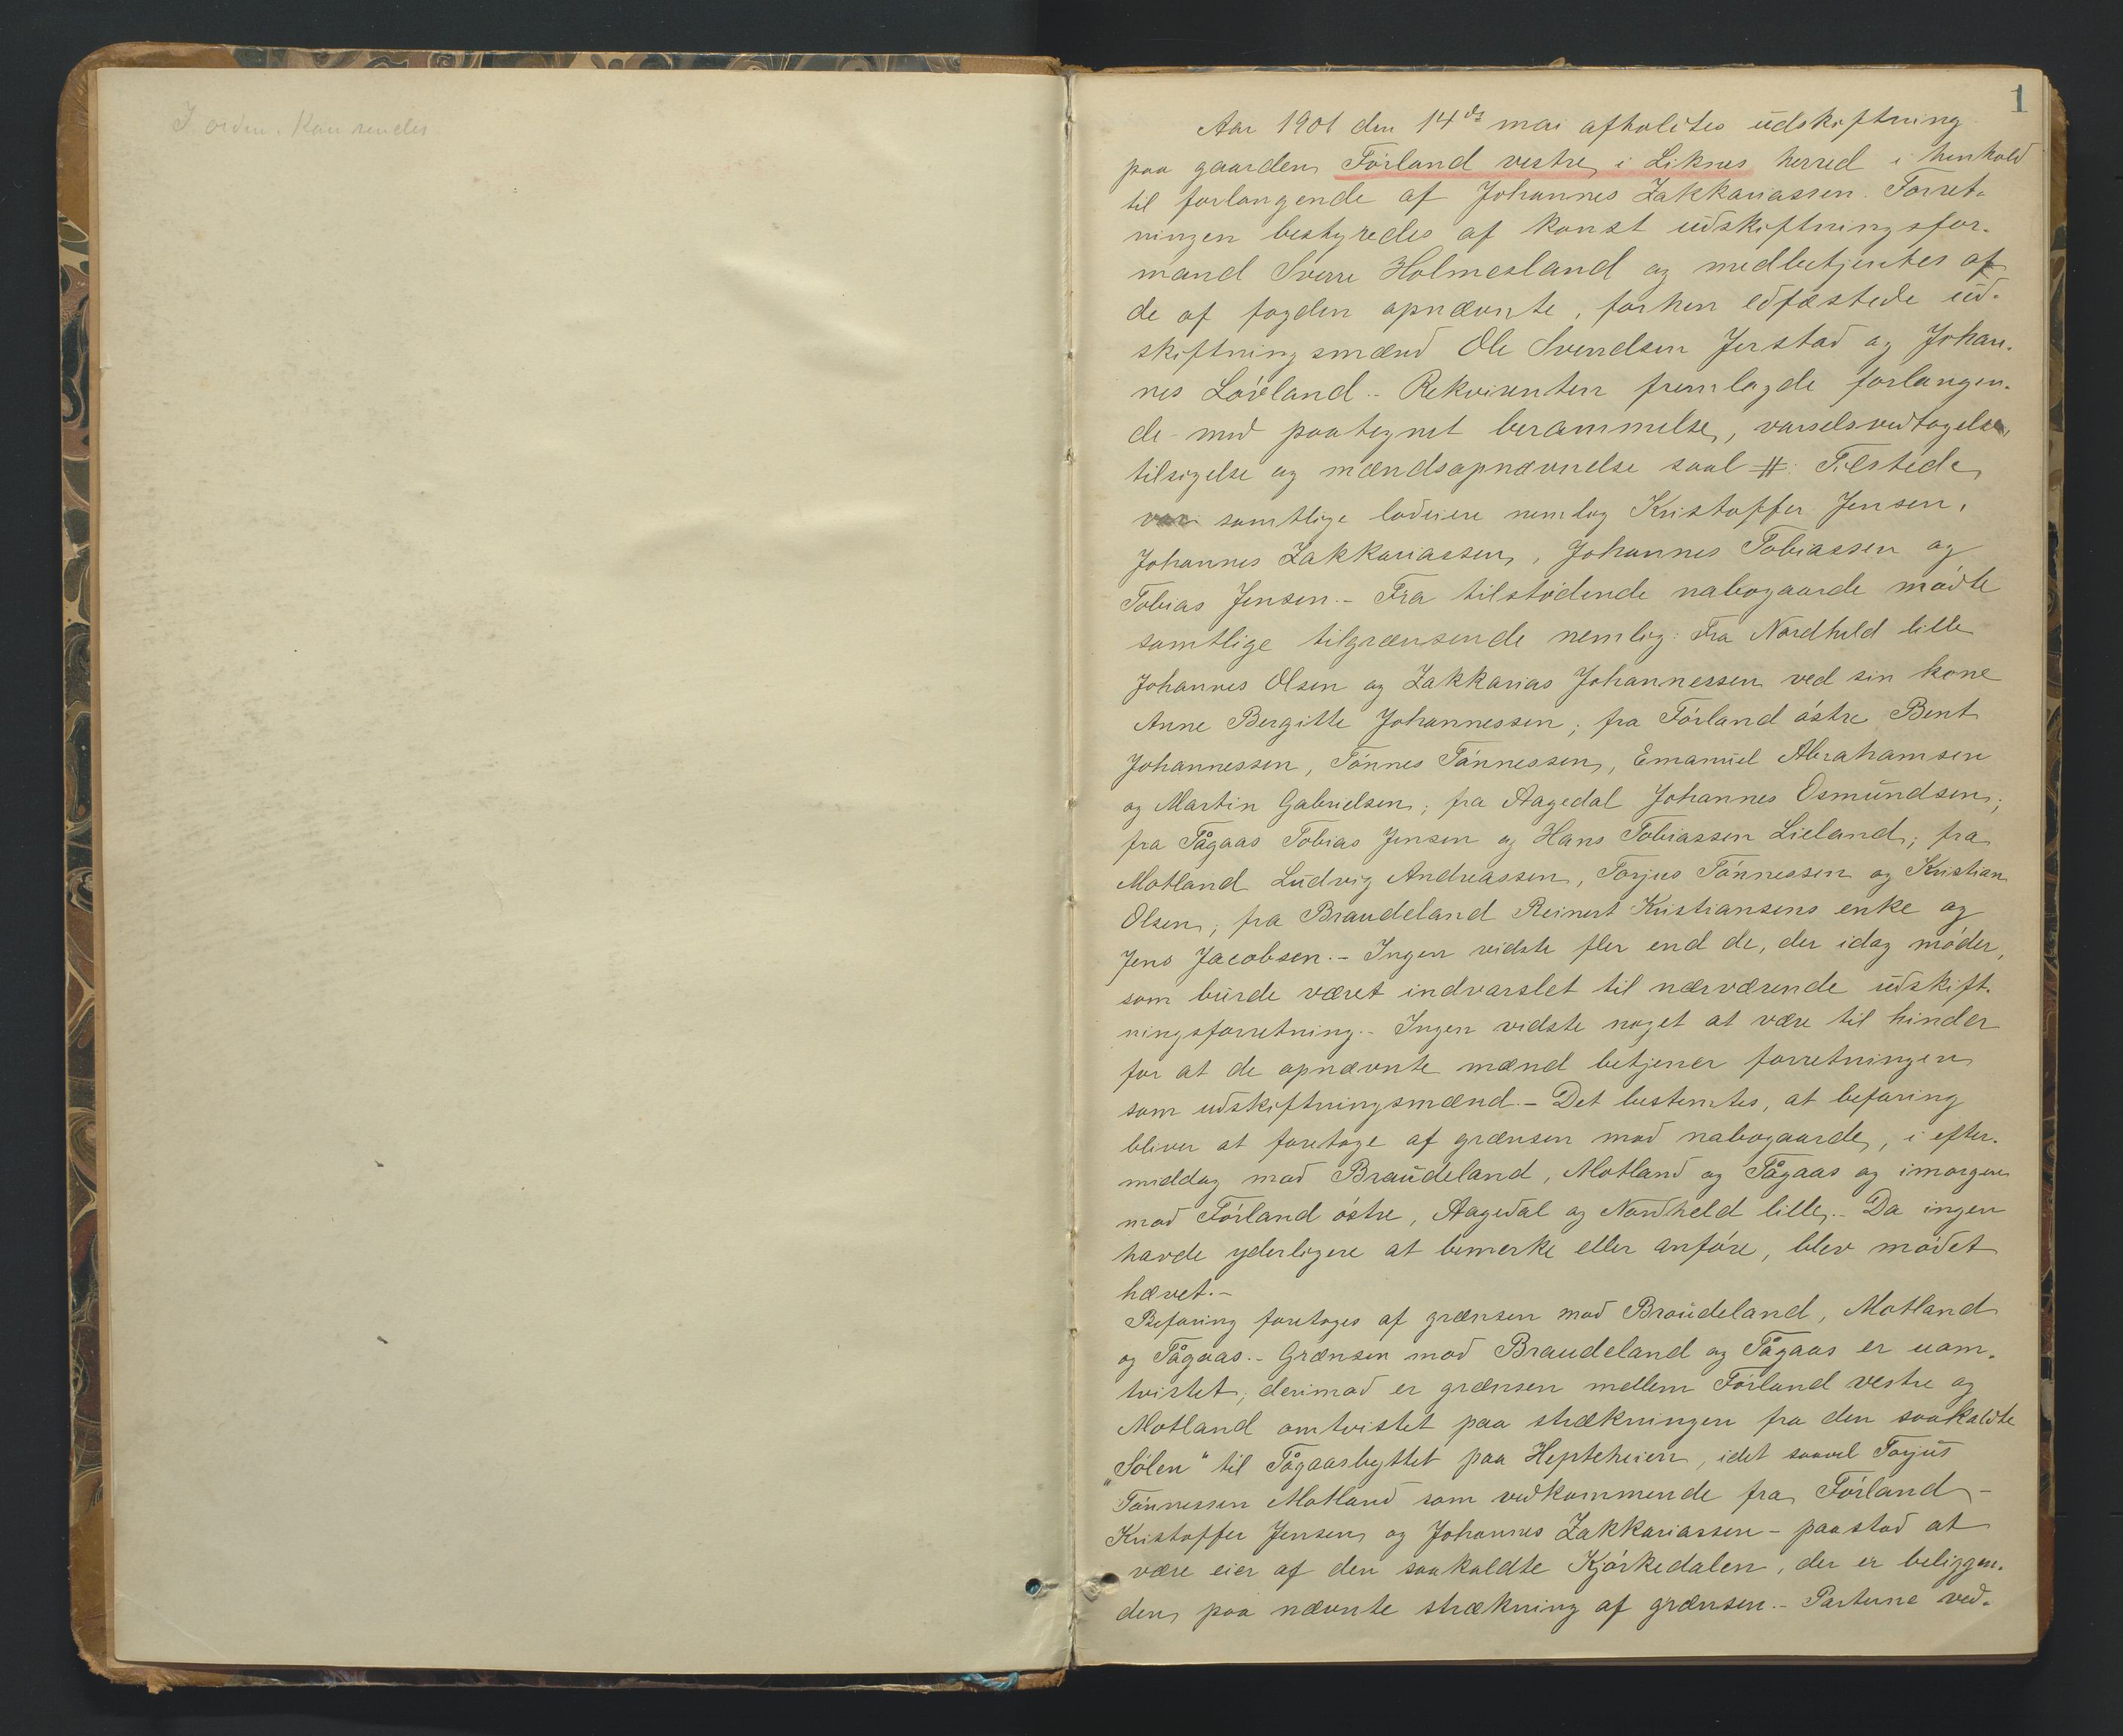 I orden. Kan sendes
1
Aar 1901 den 14de mai afholdtes udskiftning
paa gaarden Förland vestre i Liknes herred i henhold
til forlangende af Johannes Zakkariassen. Forret-
ningen bestyredes af konst udskiftningsfor-
mand Sverre Holmesland og medbetjentes af
de af fogden opnævnte, forhen edfæstede ud-
skiftningsmænd Ole Svendsen Jerstad og Johan-
nes Lövland.- Rekvirenten fremlagde forlangen-
de med paategnet berammelse, varselsvedtagelse,
tilsigelse og mændsopnævnelse saal #: Tilstede
var samtlige lodeiere nemlog Kristoffer Jensen,
Johannes Zakkariassen, Johannes Tobiassen og
Tobias Jensen.- Fra tilstödende nabogaarde mödte
samtlige tilgrænsende nemlig: Fra Nordheld lille
Johannes Olsen og Zakkarias Johannessen ved sin kone
Anne Bergitte Johannessen; fra Förland östre Bent
Johannessen, Tönnes Tönnessen, Emanuel Abrahamsen
og Martin Gabrielsen; fra Aagedal Johannes Osmundsen;
fra Tågaas Tobias Jensen og Hans Tobiassen Lieland; fra
Motland Ludvig Andreassen, Torjus Tönnessen og Kristian
Olsen; fra Braudeland Reinert Kristiansens enke og
Jens Jacobsen.- Ingen vidste fler end de, der idag möder,
som burde været indvarslet til nærværende udskift-
ningsforretning.- Ingen vidste noget at være til hinder
for at de opnævnte mænd betjener forretningen
som udskiftningsmænd.- Det bestemtes, at befaring
bliver at foretage af grænsen mod nabogaarde, i efter-
middag mod Braudeland, Motland og Tågaas og imorgen
mod Förland östre, Aagedal og Nordheld lille.- Da ingen
havde yderligere at bemerke eller anföre, blev mödet
hævet.-
Befaring foretoges af grænsen mod Braudeland, Motland
og Tågaas.- Grænsen mod Braudeland og Tågaas er uom-
tvistet; derimod er grænsen mellem Förland vestre og
Motland omtvistet paa strækningen fra den saakaldte
"Sölen" til Tågaasbyttet paa Hepteheien, idet saavel Torjus
Tönnessen Motland som vedkommende fra Förland -
Kristoffer Jensen og Johannes Zakkariassen - paastod at
være eier af den saakaldte Kjörkedalen, der er beliggen-
den paa nævnte strækning af grænsen.- Parterne ved-